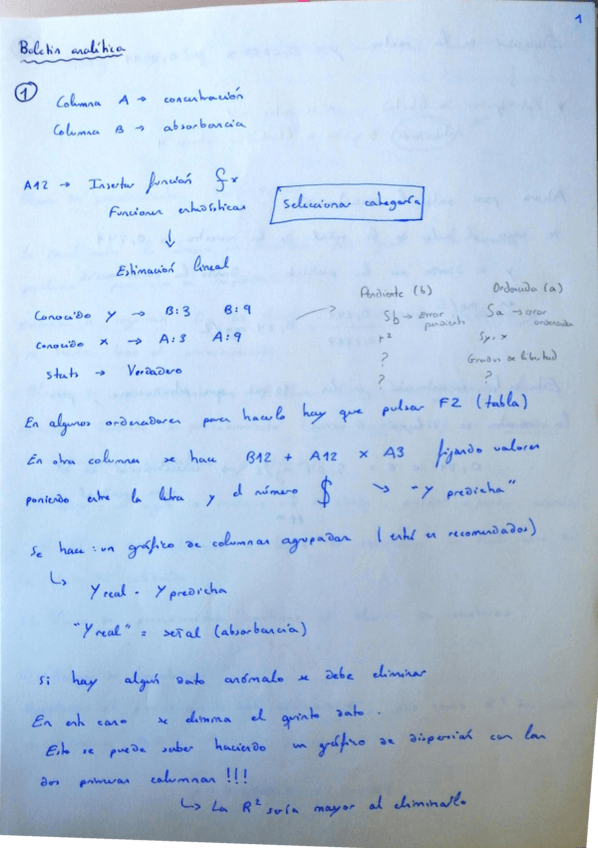 1
Boletín analítica
1
Columna A → concentración
Columna B → absorbancia
A12 → Insertar función fx
Funciones estadísticas
Seleccionar categoría
↓
Estimación lineal
Pendiente (b) Ordenada (a)
Conocido y → B:3 B:9
?
Sb → Error pendiente Sa → error ordenada
conocido x → A:3 A:9
r² Sy,x
? Grados de libertad
stats → Verdadero
? ?
En algunos ordenadores para hacerlo hay que pulsar F2 (tabla)
En otra columna se hace B12 + A12 x A3 fijando valores
poniendo entre la letra y el número $ → "y predicha"
Se hace: un gráfico de columnas agrupadas (está en recomendados)
↳ Y real - Y predicha
"Y real" = señal (absorbancia)
Si hay algún dato anómalo se debe eliminar
En este caso se elimina el quinto dato.
Esto se puede saber haciendo un gráfico de dispersión con las
dos primeras columnas !!!
↳ La R² sería mayor al eliminarlo